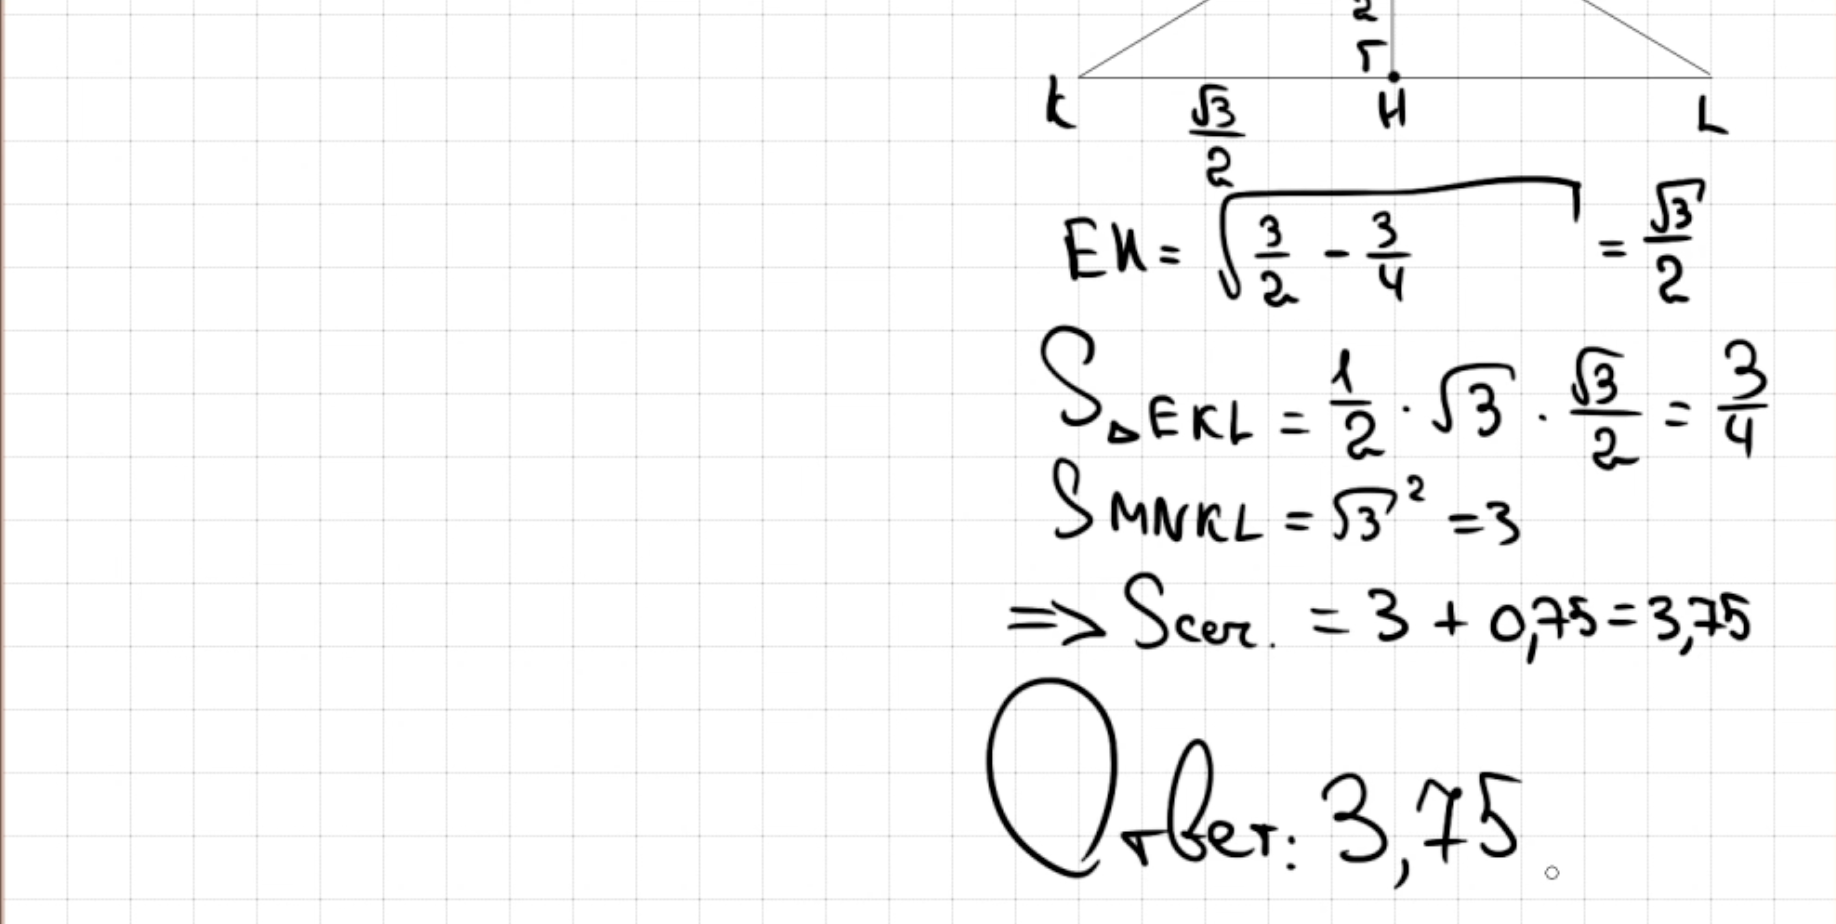 2
r
K √3/2 H L
EH = √(3/2 - 3/4) = √3/2
S▵EKL = 1/2 · √3 · √3/2 = 3/4
SMNKL = √3² = 3
=> Sсег. = 3 + 0,75 = 3,75
Ответ: 3,75